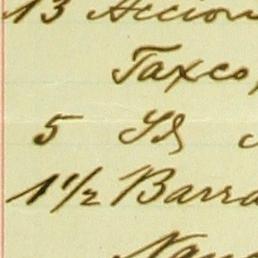 13 Accion
Taxco,
5 Id
1 1/2 Barra
Nau